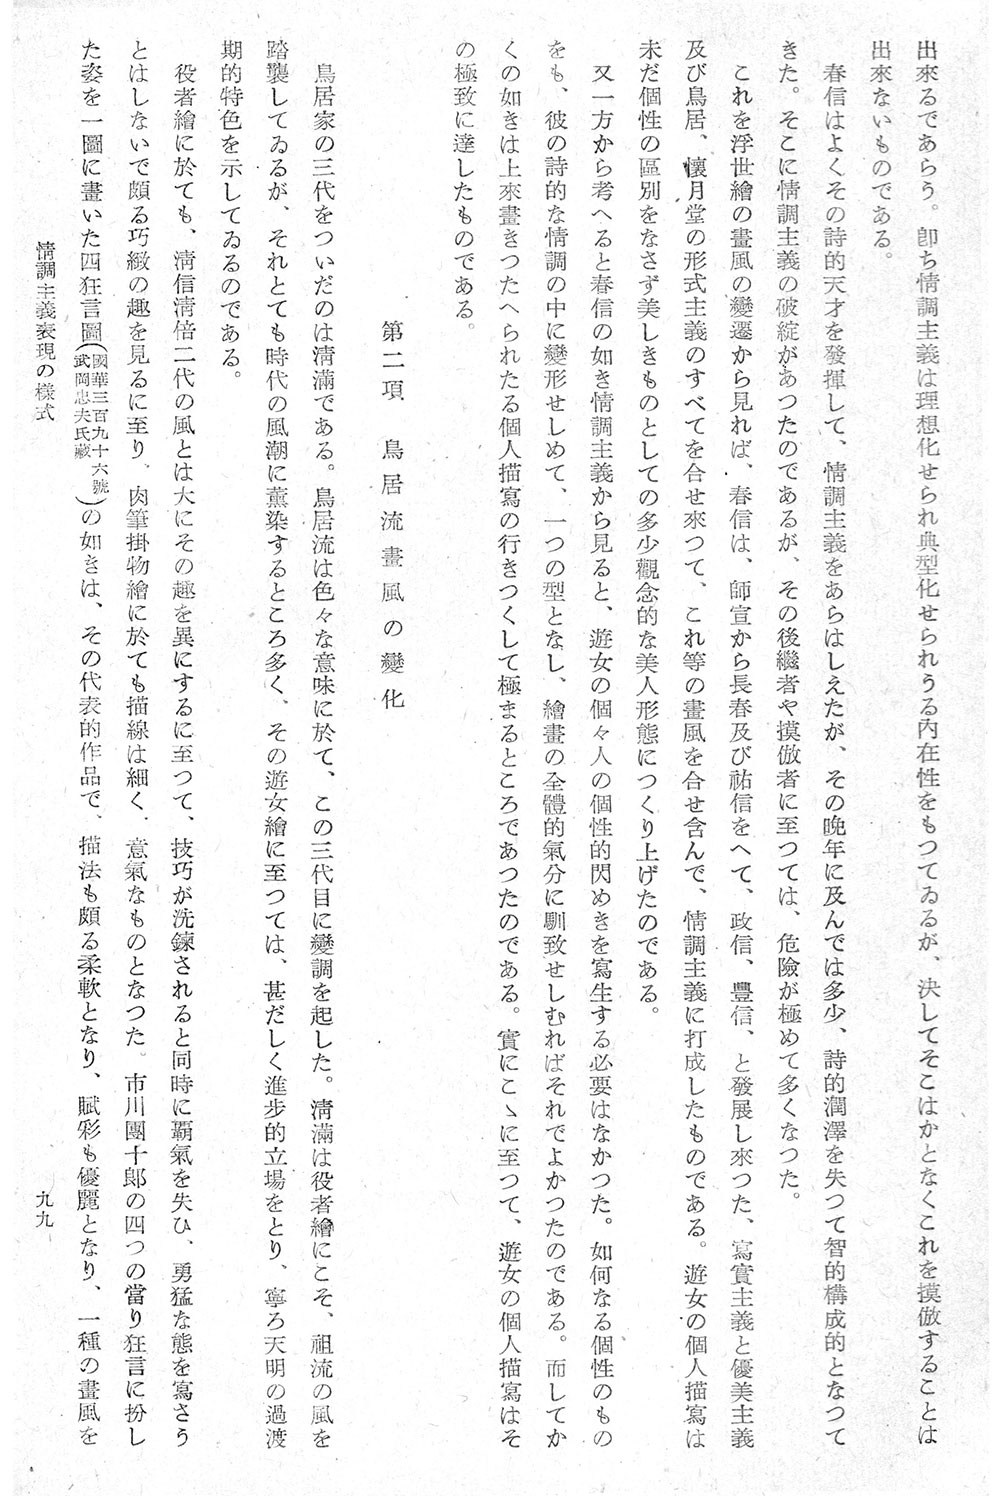 出來るであらう。卽ち情調主義は理想化せられ典型化せられうる内在性をもつてゐるが、決してそこはかとなくこれを摸倣することは
出來ないものである。
春信はよくその詩的天才を發揮して、情調主義をあらはしえたが、その晩年に及んでは多少、詩的潤澤を失つて智的構成的となつて
きた。そこに情調主義の破綻があつたのであるが、その後繼者や摸倣者に至つては、危險が極めて多くなつた。
これを浮世繪の畫風の變遷から見れば、春信は、師宣から長春及び祐信をへて、政信、豐信、と發展し來つた、寫實主義と優美主義
及び鳥居、懷月堂の形式主義のすべてを合せ來つて、これ等の畫風を合せ含んで、情調主義に打成したものである。遊女の個人描寫は
未だ個性の區別をなさず美しきものとしての多少觀念的な美人形態につくり上げたのである。
又一方から考へると春信の如き情調主義から見ると、遊女の個々人の個性的閃めきを寫生する必要はなかつた。如何なる個性のもの
をも、彼の詩的な情調の中に變形せしめて、一つの型となし、繪畫の全體的氣分に馴致せしむればそれでよかつたのである。而してか
くの如きは上來畫きつたへられたる個人描寫の行きつくして極まるところであつたのである。實にこゝに至つて、遊女の個人描寫はそ
の極致に達したものである。
第二項　鳥居流畫風の變化
鳥居家の三代をついだのは淸滿である。鳥居流は色々な意味に於て、この三代目に變調を起した。淸滿は役者繪にこそ、祖流の風を
踏襲してゐるが、それとても時代の風潮に薰染するところ多く、その遊女繪に至つては、甚だしく進步的立場をとり、寧ろ天明の過渡
期的特色を示してゐるのである。
役者繪に於ても、淸信淸倍二代の風とは大にその趣を異にするに至つて、技巧が洗鍊されると同時に覇氣を失ひ、勇猛な態を寫さう
とはしないで頗る巧緻の趣を見るに至り、肉筆掛物繪に於ても描線は細く、意氣なものとなつた。市川團十郎の四つの當り狂言に扮し
た姿を一圖に畫いた四狂言圖(國華三百九十六號武岡忠夫氏藏)の如きは、その代表的作品で、描法も頗る柔軟となり、賦彩も優麗となり、一種の畫風を
情調主義表現の樣式
九九